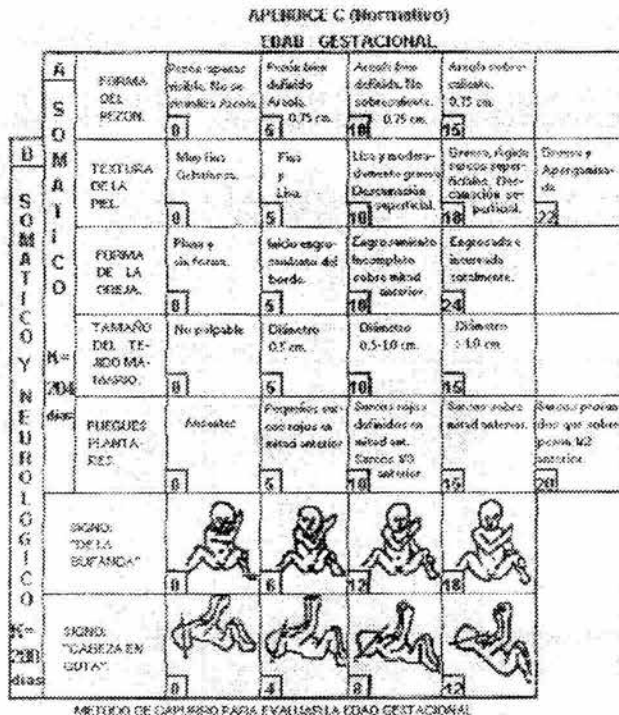 APENDICE C (Normativo)
EDAD GESTACIONAL
A SOMATICO K= 204 dias
B SOMATICO Y NEUROLOGICO K= 200 dias
FORMA
DEL
PEZON.
Pezón apenas
visible. No se
Areola.
0
Pezón bien
definido
Areola.
0.75 cm.
5
Areola bien
definida. No
sobresaliente.
0.75 cm.
10
Areola sobre-
saliente.
0.75 cm.
15
TEXTURA
DE LA
PIEL.
Muy fina
Gelatinosa.
0
Fina
y
Lisa.
5
Lisa y modera-
damente gruesa
Descamación
superficial.
10
Gruesa, rígida
surcos super-
ficiales, Des-
camación su-
perficial.
18
Gruesa y
Apergamina-
da
22
FORMA
DE LA
OREJA.
Plana y
sin forma.
0
Inicio engro-
samiento del
borde.
5
Engrosamiento
incompleto
sobre mitad
anterior.
10
Engrosada e
incurvada
totalmente.
24
TAMAÑO
DEL TE-
JIDO MA-
MARIO.
No palpable
0
Diámetro
0.5 cm.
5
Diámetro
0.5-1.0 cm.
10
Diámetro
1.0 cm.
15
PLIEGUES
PLANTA-
RES.
Ausentes
0
Pequeños sur-
cos rojos en
mitad anterior
5
Surcos rojos
definidos en
mitad ant.
Surcos 1/3
anterior.
10
Surcos sobre
mitad anterior.
15
Surcos profun-
dos que sobre-
pasan 1/2
anterior.
20
SIGNO:
"DE LA
BUFANDA"
0
6
12
18
SIGNO:
"CABEZA EN
GOTA".
0
4
8
12
METODO DE CAPURRO PARA EVALUAR LA EDAD GESTACIONAL